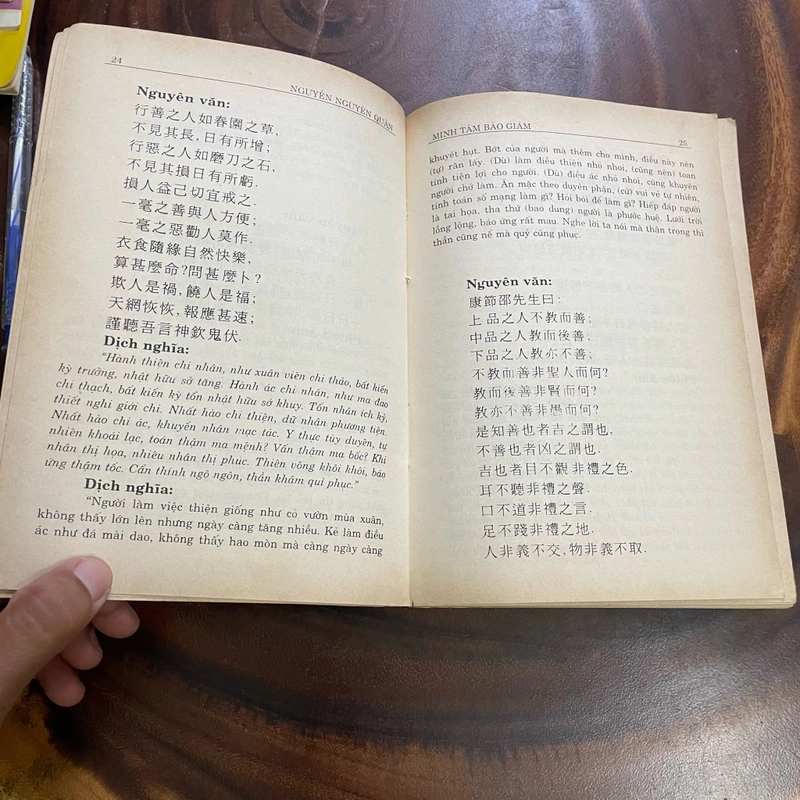 24
NGUYỄN NGUYÊN QUÂN
Nguyên văn:
行善之人如春園之草,
不見其長,日有所增;
行惡之人如磨刀之石,
不見其損日有所虧.
損人益己切宜戒之.
一毫之善與人方便;
一毫之惡勸人莫作.
衣食隨緣自然快樂,
算甚麼命?問甚麼卜?
欺人是禍,饒人是福;
天網恢恢,報應甚速;
謹聽吾言神欽鬼伏.
Dịch nghĩa:
"Hành thiện chi nhân, như xuân viên chi thảo, bất kiến
kỳ trưởng, nhật hữu sở tăng. Hành ác chi nhân, như ma đao
chi thạch, bất kiến kỳ tổn nhật hữu sở khuy. Tổn nhân ích kỷ,
thiết nghi giới chi. Nhất hào chi thiện, dữ nhân phương tiện.
Nhất hào chi ác, khuyến nhân mạc tác. Y thực tùy duyên, tự
nhiên khoái lạc, toán thậm ma mệnh? Vấn thậm ma bốc? Khi
nhân thị họa, nhiêu nhân thị phúc. Thiên võng khôi khôi, báo
ứng thậm tốc. Cẩn thính ngô ngôn, thần khâm quỉ phục."
Dịch nghĩa:
"Người làm việc thiện giống như cỏ vườn mùa xuân,
không thấy lớn lên nhưng ngày càng tăng nhiều. Kẻ làm điều
ác như đá mài dao, không thấy hao mòn mà càng ngày càng
MINH TÂM BẢO GIÁM
25
khuyết hụt. Bớt của người mà thêm cho mình, điều này nên
(tự) răn lấy. (Dù) làm điều thiện nhỏ nhoi, (cũng nên) toan
tính tiện lợi cho người. (Dù) điều ác nhỏ nhoi, cũng khuyên
người chớ làm. Ăn mặc theo duyên phận, (cứ) vui vẻ tự nhiên,
tính toán số mạng làm gì? Hỏi bói để làm gì? Hiếp đáp người
là tai họa, tha thứ (bao dung) người là phước huệ. Lưới trời
lồng lộng, báo ứng rất mau. Nghe lời ta nói mà thận trọng thì
thần cũng nể mà quỷ cũng phục.
Nguyên văn:
康節邵先生曰:
上品之人不教而善;
中品之人教而後善;
下品之人教亦不善;
不教而善非聖人而何?
教而後善非賢而何?
教亦不善非愚而何?
是知善也者吉之謂也,
不善也者凶之謂也.
吉也者目不觀非禮之色.
耳不聽非禮之聲.
口不道非禮之言.
足不踐非禮之地.
人非義不交,物非義不取.